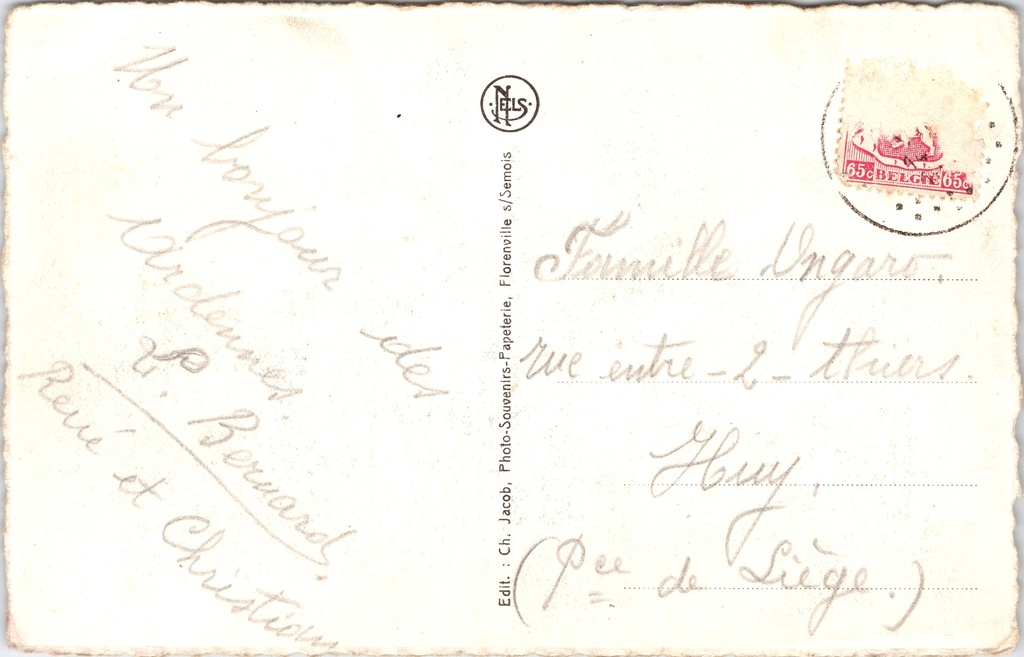 Un bonjour des
Ardennes.
Bernard,
René et Christian
NELS
Edit. : Ch. Jacob, Photo-Souvenirs-Papeterie, Florenville s/Semois
65c BELGIE 65c
Famille Ungaro.
rue entre-2-thiers.
Huy.
(Pce de Liège.)